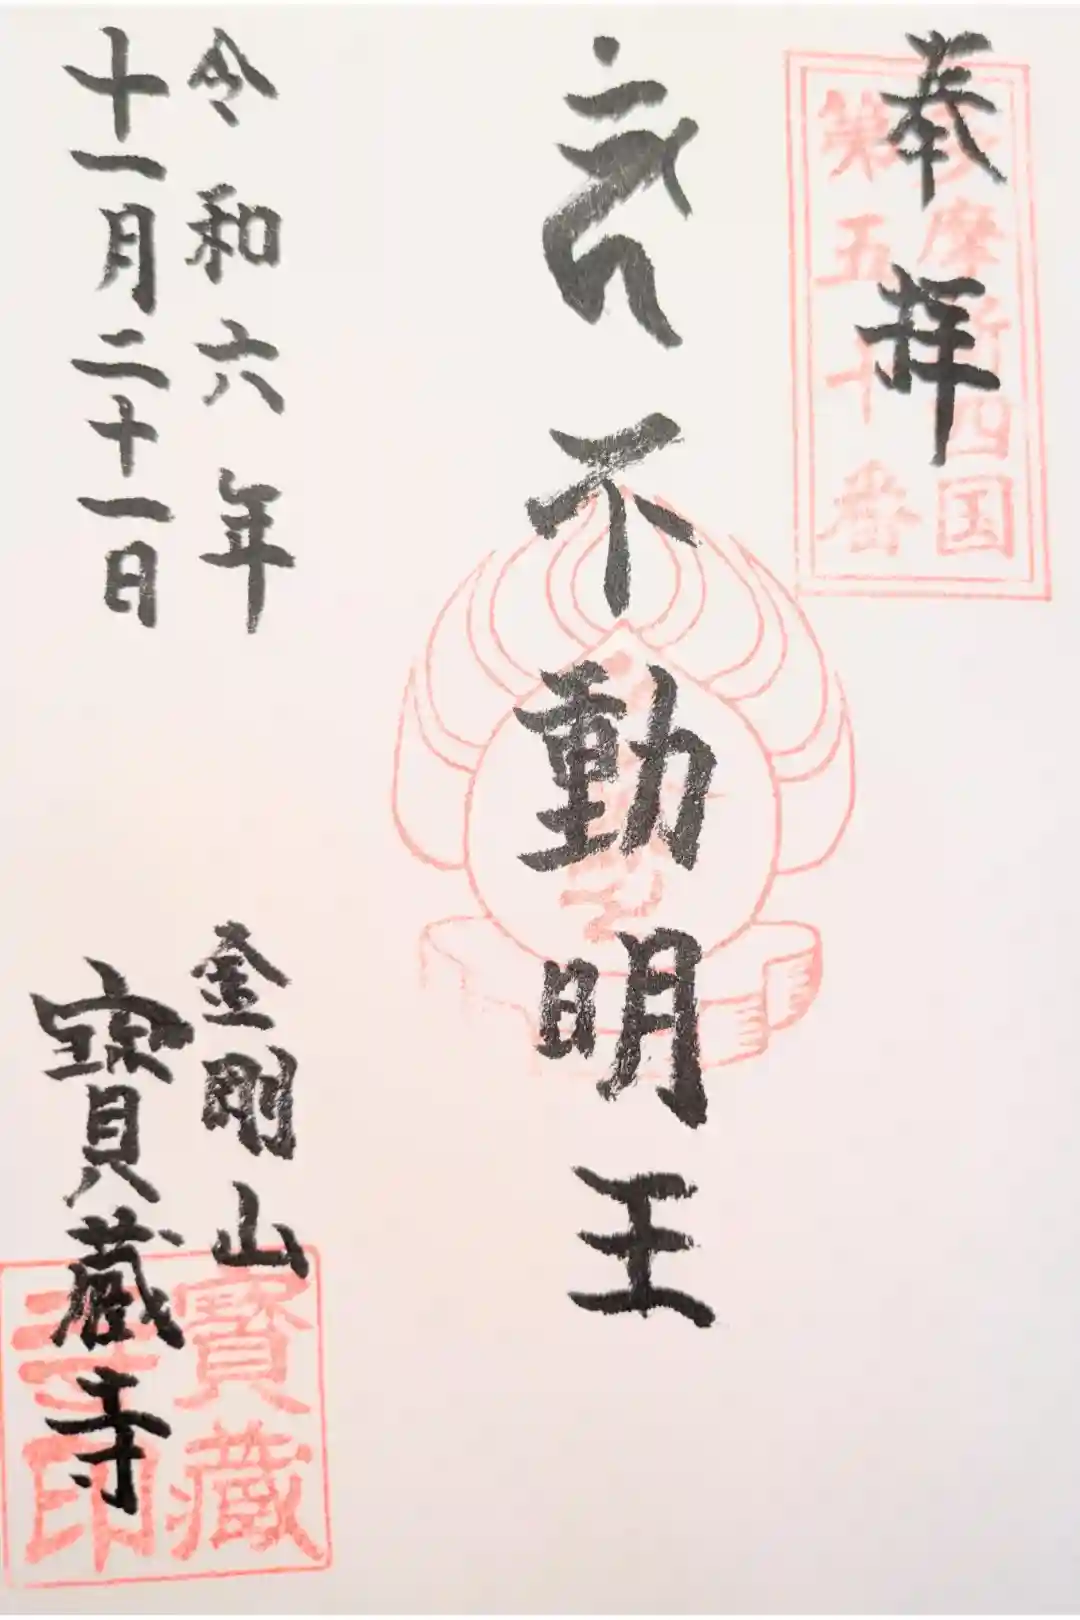 奉拝
多摩新四国
第五十番
不動明王
令和六年
十一月二十一日
金剛山
寶蔵寺
寶蔵
寺印